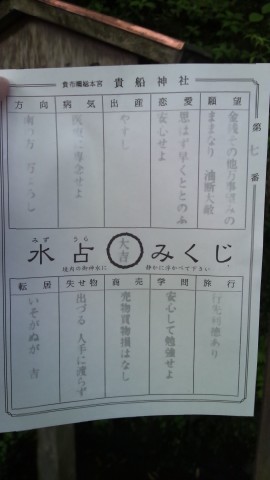 貴布禰総本宮 貴船神社
第七番
願望
金銭その他万事望みの
ままなり 油断大敵
恋愛
思はず早くととのふ
安心せよ
出産
やすし
病気
医薬に専念せよ
方向
南の方 万よろし
みず うら
水占 みくじ
大吉
境内の御神水に
静かに浮かべて下さい
旅行
行先利徳あり
学問
安心して勉強せよ
商売
売物買物損はなし
失せ物
出づる 人手に渡らず
転居
いそがぬが 吉